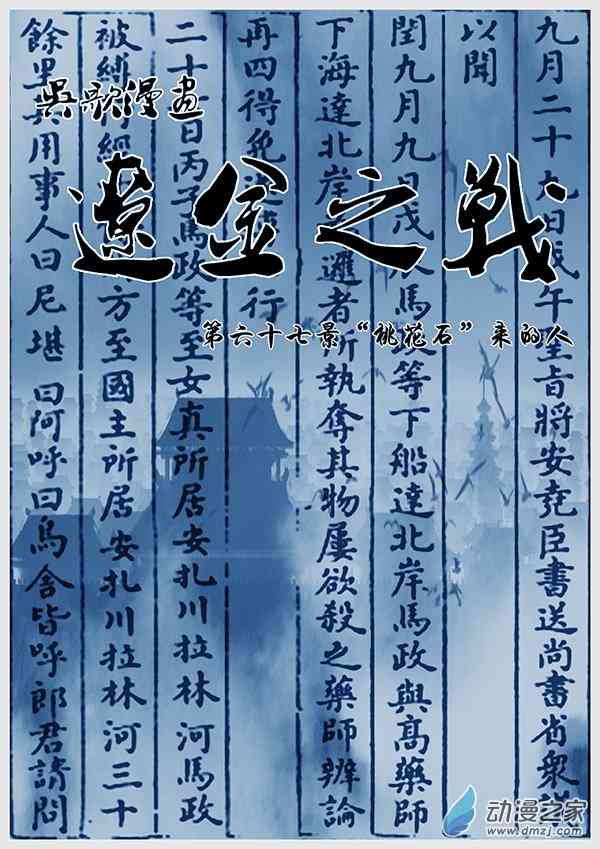 吳歌漫畫
遼金之戰
第六十七景“桃花石”来的人
九月二十九日戊午聖旨將安堯臣書送尚書省衆議
以聞
閏九月九日戊 馬政等下船達北岸馬政與高藥師
下海達北岸 邏者所執奪其物屢欲殺之藥師辨論
再四得免 行
二十 日丙子馬政等至女真所居安扎川拉林河馬政
被縛 經 方至國主所居安扎川拉林河三十
餘里 用事人曰尼堪曰阿呼曰烏舍皆呼郎君詰問
动漫之家
www.dmzj.com